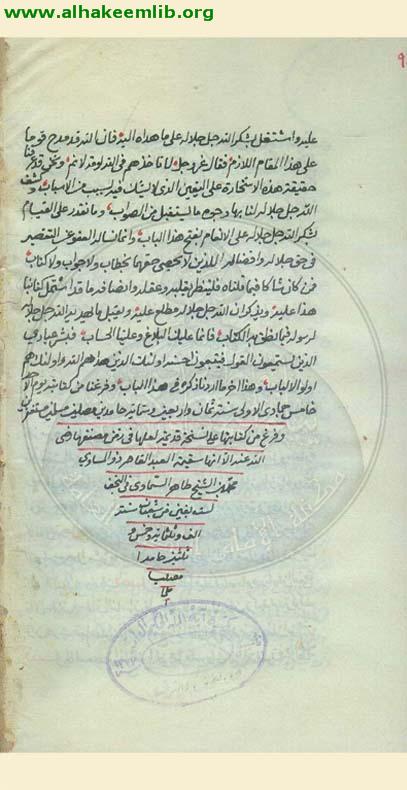 www.alhakeemlib.org
عليه واشتغل بشكر الله جل جلاله على ما هداه اليه فان الله قد مدح قوما
على هذا المقام اللازم فقال عز وجل لا تاخذهم في الله لومة لائم ونحن قد عرفنا
حقيقة هذه الاستخارة على اليقين الذي لا شك فيه لسبب من الاسباب وكشف
الله جل جلاله لنا بها وجوه ما يستقبل من الصواب وما نقدر على القيام
لشكر الله جل جلاله على الانعام بفتح هذا الباب وانما نساله العفو عن التقصير
في حق جلاله وافضاله اللذين لا يحصى حقهما بخطاب ولا جواب ولا كتاب
فمن كان شاكا فيما قلناه فلينظر بقلبه وعقله وانصافه ما قد اشتمل كتابنا
هذا عليه ويذكر ان الله جل جلاله مطلع عليه ويقبل ما هداه الله جل جلاله
لرسوله فيما نطق به الكتاب فانما عليك البلاغ وعلينا الحساب فبشر عبادي
الذين يستمعون القول فيتبعون احسنه اولئك الذين هداهم الله واولئك هم
اولو الالباب وهذا اخر ما اردنا ذكره في هذا الباب وفرغنا من كتابته يوم
خامس جمادى الاولى سنة ثمان واربعين وستمائة حامدين مصلين مسلمين
وفرغ من كتابتها على نسخة قديمة لعلها في زمن مصنفها رضي
الله عنه
محمد بن الشيخ طاهر السماوي في النجف
لسنة بقين من شعبان سنة
الف وثلاثمائة وخمس و
ثلثين حامدا
مصليا